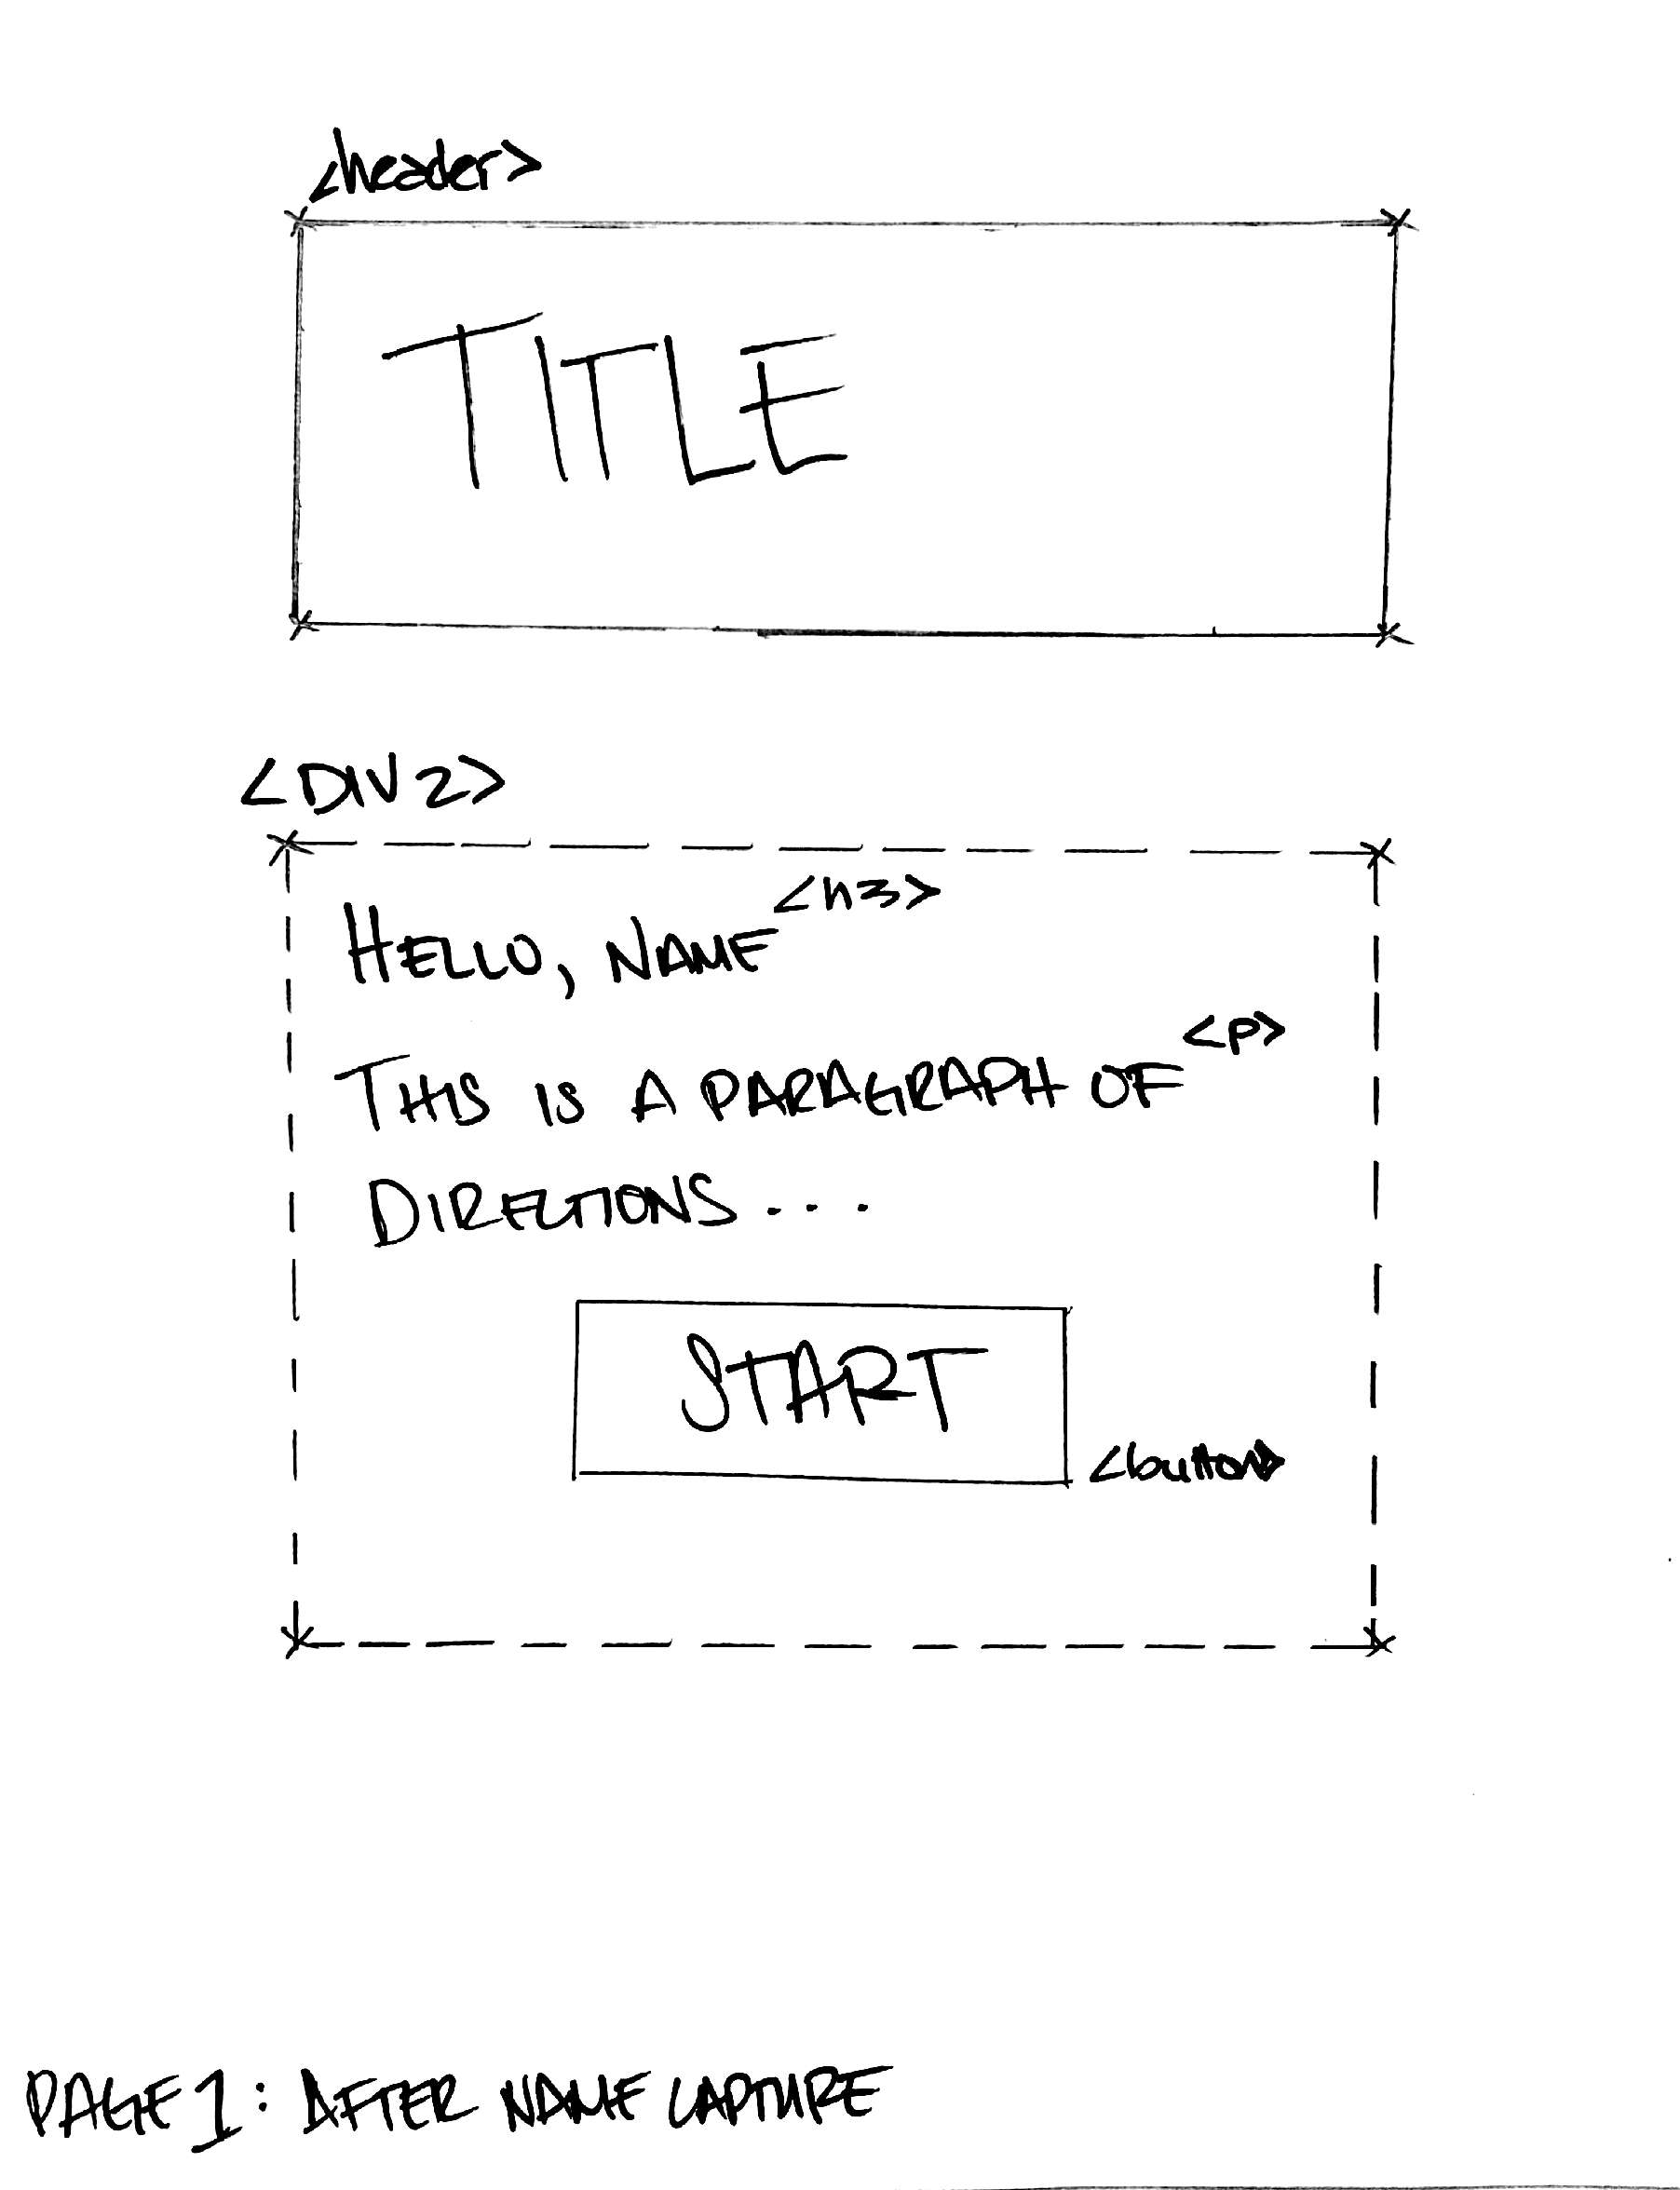 <header>
TITLE
<DIV 2>
HELLO, NAME <h3>
THIS IS A PARAGRAPH OF <p>
DIRECTIONS...
START
<button>
PAGE 1: AFTER NAME CAPTURE